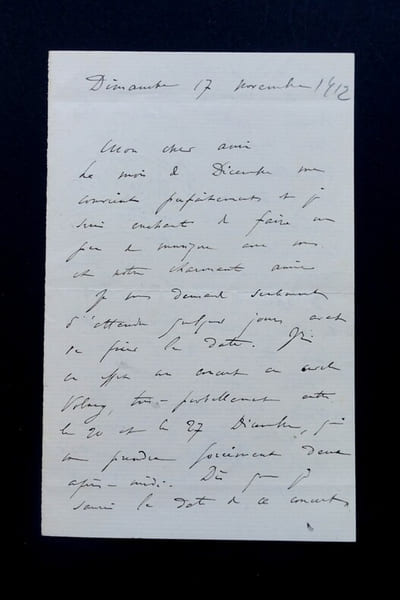 Dimanche 17 novembre 1912
Mon cher ami
Le mois de Décembre me
convient parfaitement et je
suis enchanté de faire un
peu de musique avec vous
et notre charmant amie
Je vous demande seulement
d'attendre quelques jours avant
de fixer la date. J'ai
en effet un concert au cercle
Volney, très-partiellement entre
le 20 et le 27 Décembre, qui
me prendra forcément deux
après-midi. Dès que je
saurai la date de ce concert